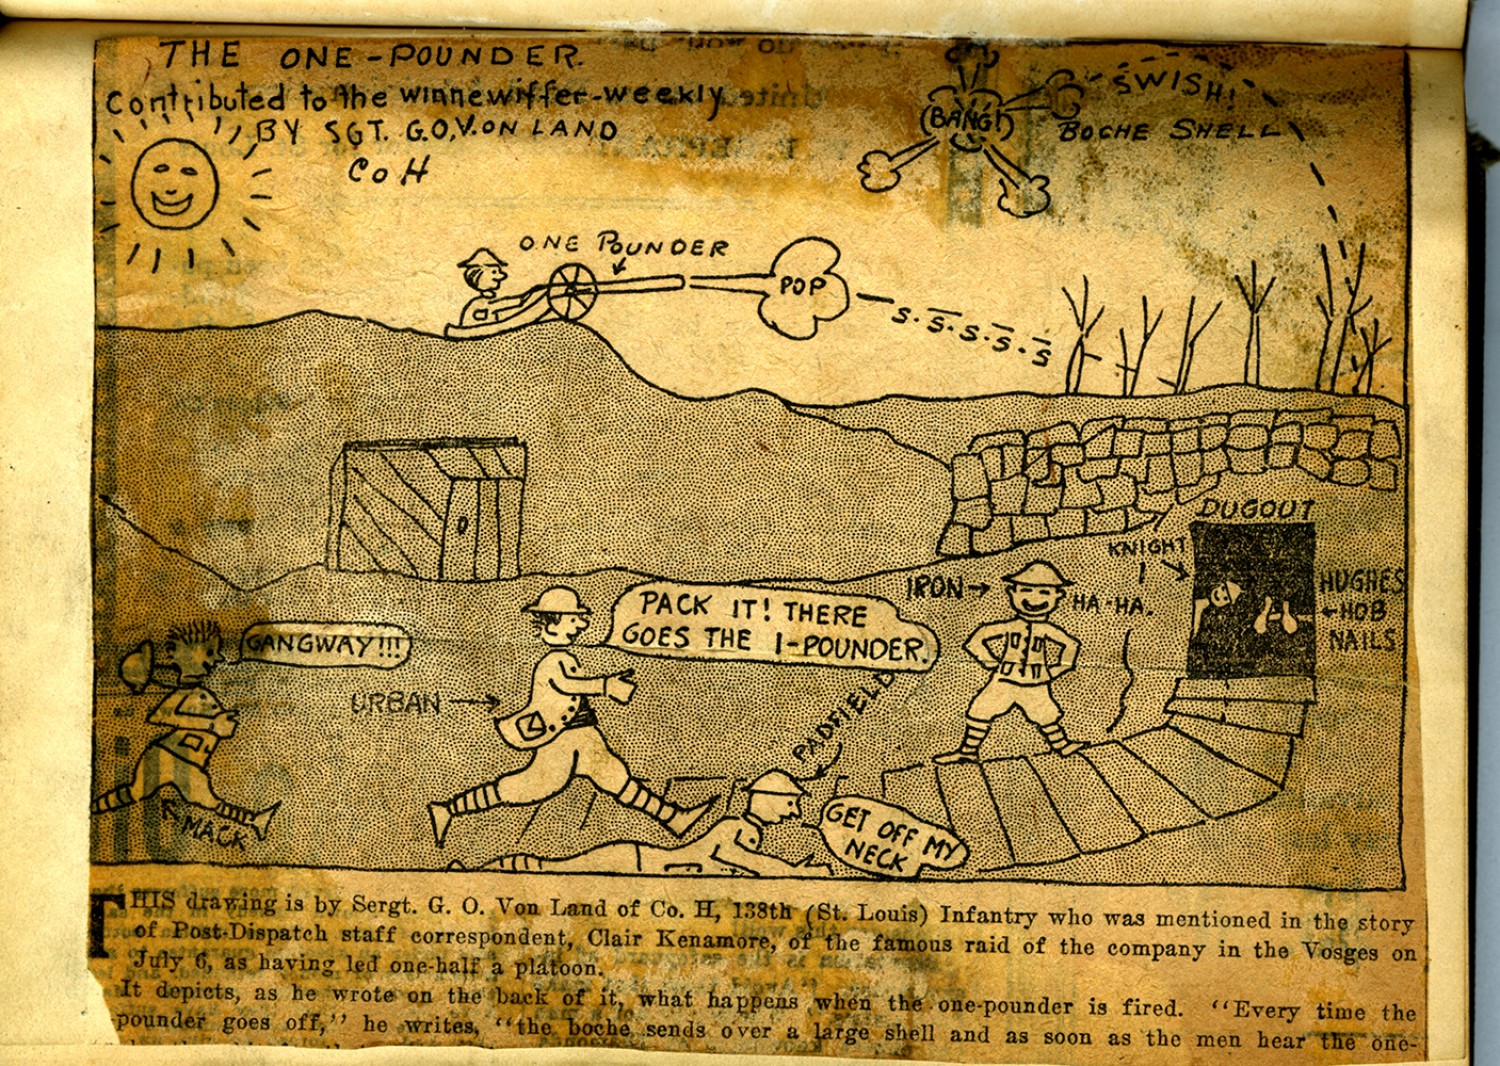 THE ONE-POUNDER.
Contributed to the winnewiffer-weekly
BY SGT. G.O.V.ON LAND
Co H
(BANG!)
SWISH!
BOCHE SHELL
ONE POUNDER
POP
S.S.S.S.S
DUGOUT
KNIGHT
IRON
HA-HA.
HUGHES
HOB
NAILS
GANGWAY!!!
PACK IT! THERE
GOES THE 1-POUNDER.
URBAN
PADFIELD
MACK
GET OFF MY
NECK
THIS drawing is by Sergt. G. O. Von Land of Co. H, 138th (St. Louis) Infantry who was mentioned in the story
of Post-Dispatch staff correspondent, Clair Kenamore, of the famous raid of the company in the Vosges on
July 6, as having led one-half a platoon.
It depicts, as he wrote on the back of it, what happens when the one-pounder is fired. "Every time the
pounder goes off," he writes, "the boche sends over a large shell and as soon as the men hear the one-